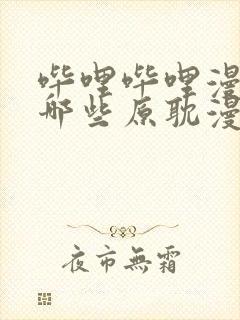 哔哩哔哩漫
那些原耽漫
夜市無霜